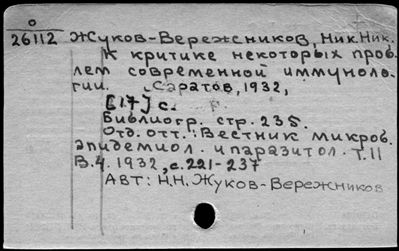 О
26112 Жуков-Вережников, Ник. Ник.
К критике некоторых проб-
лем современной иммуноло-
гии. Саратов, 1932,
[17] с.
Библиогр. стр. 235.
Отд. отт.: Вестник микроб.
эпидемиол. и паразитол. Т. 11
В. 4. 1932, с. 221-237
Авт: Н.Н. Жуков-Вережников